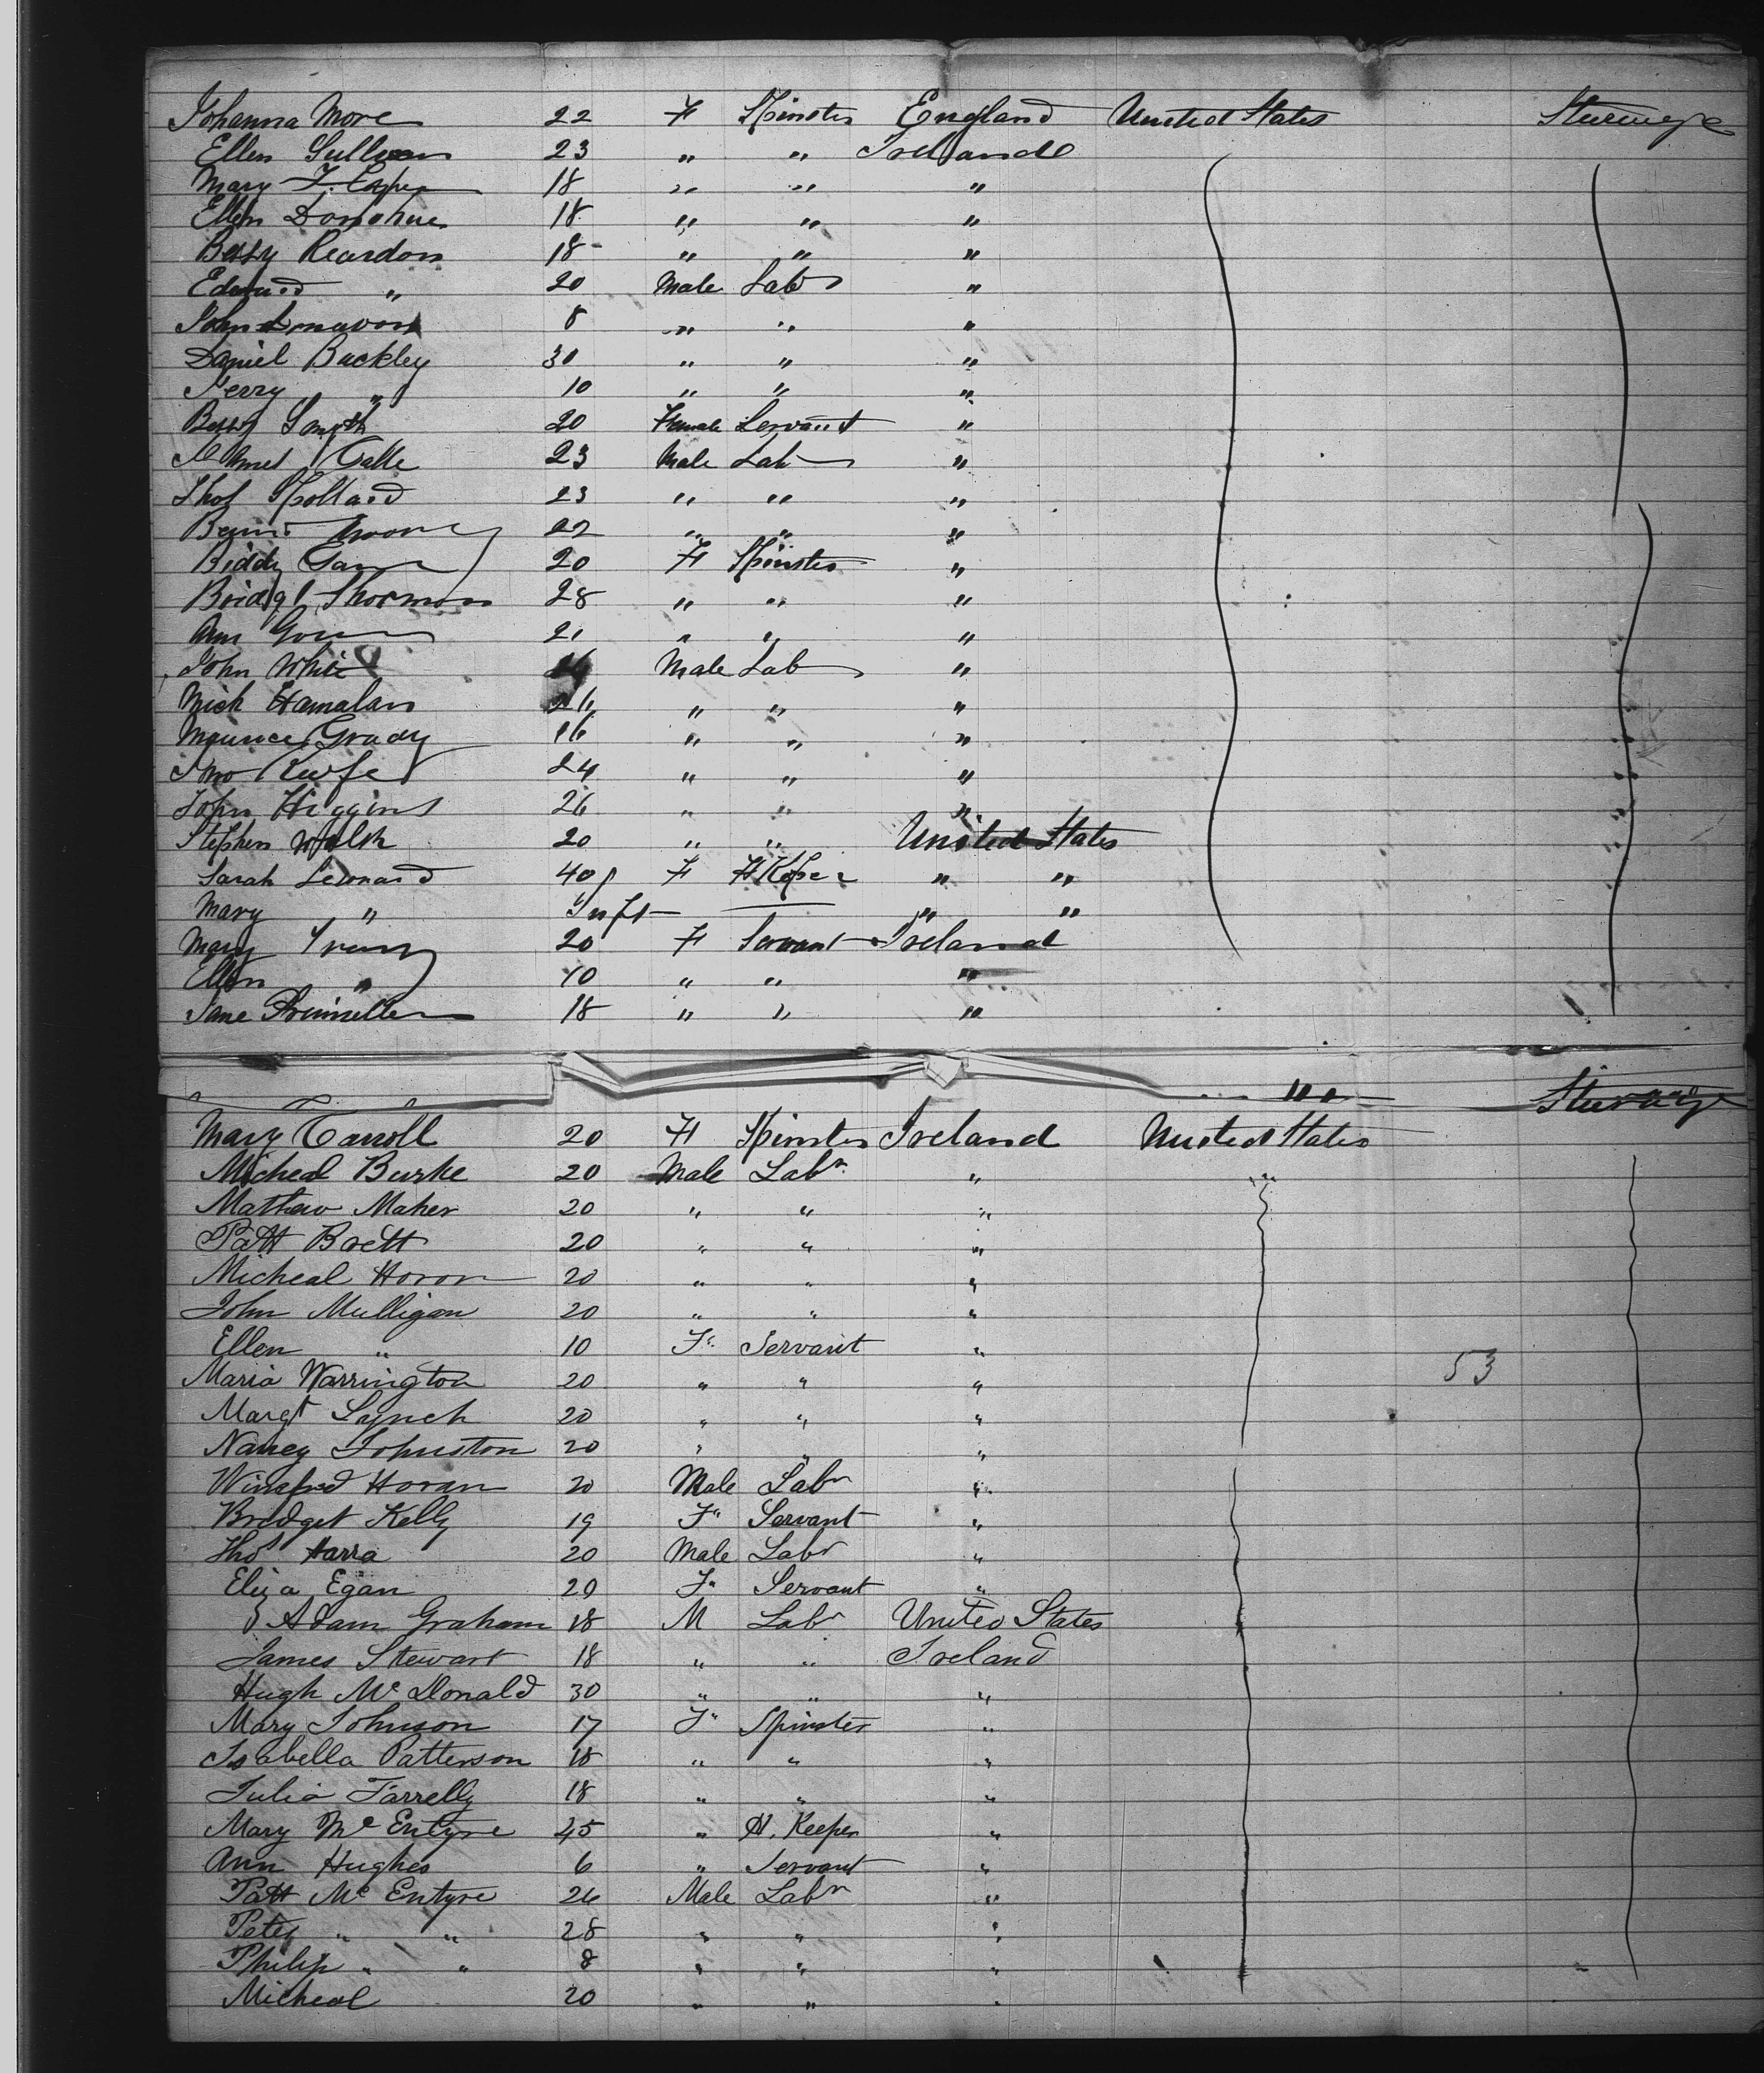 Johanna More 22 F Spinster England United States Steerage
Ellen Sullivan 23 " " Ireland
Mary 18 " " "
Ellen Donohue 18 " " "
Bessy Reardon 18 " " "
Edward " 20 Male Lab "
John 8 " " "
Daniel Buckley 30 " " "
Jerry " 10 " " "
Bessy Smyth 20 Female Servant "
23 Male Lab "
Thos 23 " " "
22 " " "
Biddy 20 F Spinster "
Bridgt 28 " " "
Ann 21 " " "
John White Male Lab "
Mick Hamalan 26 " " "
Maurice Grady 16 " " "
Jno Keefe 24 " " "
John Higgins 26 " " "
Stephen Walsh 20 " " United States
Sarah Leonard 40 F HKeper " "
Mary " Inft " "
Mary 20 F Servant Ireland
Ellen " 10 " " "
Jane 18 " " "
" Steerage
Mary Carroll 20 F Spinster Ireland United States
Micheal Burke 20 Male Labr " "
Mathew Maher 20 " " "
Patt Brett 20 " " "
Micheal Horon 20 " " "
John Mulligan 20 " " "
Ellen " 10 F Servant "
Maria Warrington 20 " " " 53
Margt Lynch 20 " " "
Nancy Johnston 20 " " "
Winefred Horan 20 Male Labr "
Bridget Kelly 19 F Servant "
Thos Harra 20 Male Labr "
Eliza Egan 20 F Servant "
Adam Graham 18 M Labr United States
James Stewart 18 " " Ireland
Hugh McDonald 30 " " "
Mary Johnson 17 F Spinster "
Isabella Patterson 18 " " "
Julia Farrelly 18 " " "
Mary McEntyre 45 " H. Keeper "
Ann Hughes 6 " Servant "
Patt McEntyre 26 Male Labr "
Peter " " 28 " " "
Philip " " 8 " " "
Micheal 20 " " "